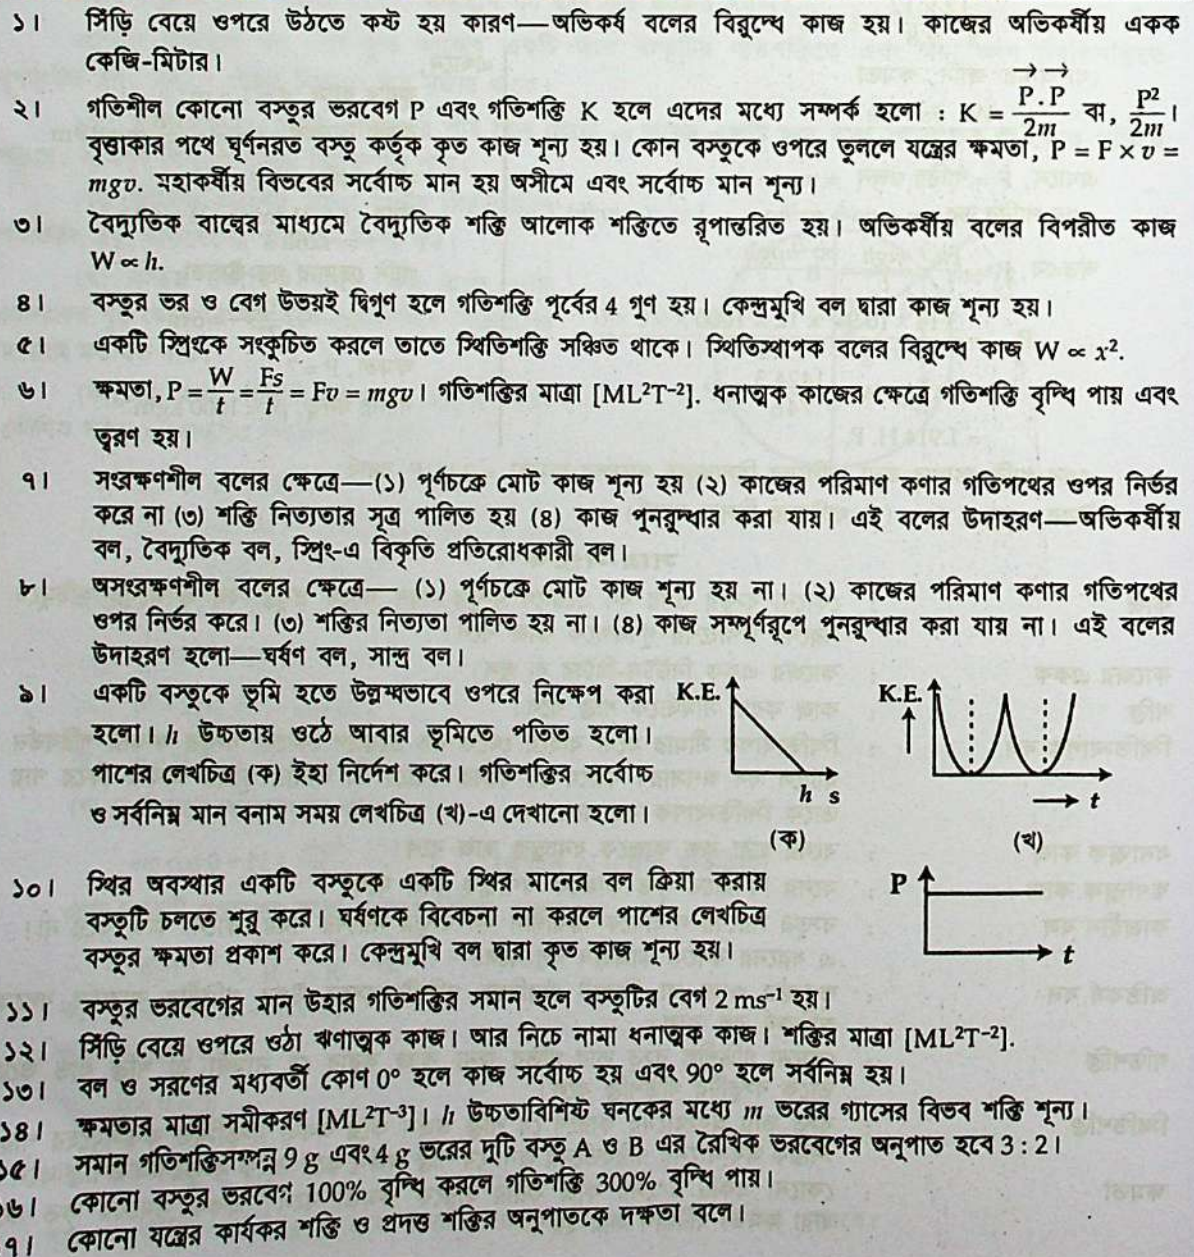 ১। সিঁড়ি বেয়ে ওপরে উঠতে কষ্ট হয় কারণ—অভিকর্ষ বলের বিরুদ্ধে কাজ হয়। কাজের অভিকর্ষীয় একক
কেজি-মিটার।
২। গতিশীল কোনো বস্তুর ভরবেগ P এবং গতিশক্তি K হলে এদের মধ্যে সম্পর্ক হলো : K = \frac{\vec{P}.\vec{P}}{2m} বা, \frac{P²}{2m}।
বৃত্তাকার পথে ঘূর্ণনরত বস্তু কর্তৃক কৃত কাজ শূন্য হয়। কোন বস্তুকে ওপরে তুললে যন্ত্রের ক্ষমতা, P = F × v =
mgv. মহাকর্ষীয় বিভবের সর্বোচ্চ মান হয় অসীমে এবং সর্বোচ্চ মান শূন্য।
৩। বৈদ্যুতিক বাল্বের মাধ্যমে বৈদ্যুতিক শক্তি আলোক শক্তিতে রূপান্তরিত হয়। অভিকর্ষীয় বলের বিপরীত কাজ
W ∝ h.
৪। বস্তুর ভর ও বেগ উভয়ই দ্বিগুণ হলে গতিশক্তি পূর্বের 4 গুণ হয়। কেন্দ্রমুখি বল দ্বারা কাজ শূন্য হয়।
৫। একটি স্প্রিংকে সংকুচিত করলে তাতে স্থিতিশক্তি সঞ্চিত থাকে। স্থিতিস্থাপক বলের বিরুদ্ধে কাজ W ∝ x².
৬। ক্ষমতা, P = \frac{W}{t} = \frac{Fs}{t} = Fv = mgv। গতিশক্তির মাত্রা [ML²T⁻²]. ধনাত্মক কাজের ক্ষেত্রে গতিশক্তি বৃদ্ধি পায় এবং
ত্বরণ হয়।
৭। সংরক্ষণশীল বলের ক্ষেত্রে—(১) পূর্ণচক্রে মোট কাজ শূন্য হয় (২) কাজের পরিমাণ কণার গতিপথের ওপর নির্ভর
করে না (৩) শক্তি নিত্যতার সূত্র পালিত হয় (৪) কাজ পুনরুদ্ধার করা যায়। এই বলের উদাহরণ—অভিকর্ষীয়
বল, বৈদ্যুতিক বল, স্প্রিং-এ বিকৃতি প্রতিরোধকারী বল।
৮। অসংরক্ষণশীল বলের ক্ষেত্রে— (১) পূর্ণচক্রে মোট কাজ শূন্য হয় না। (২) কাজের পরিমাণ কণার গতিপথের
ওপর নির্ভর করে। (৩) শক্তির নিত্যতা পালিত হয় না। (৪) কাজ সম্পূর্ণরূপে পুনরুদ্ধার করা যায় না। এই বলের
উদাহরণ হলো—ঘর্ষণ বল, সান্দ্র বল।
৯। একটি বস্তুকে ভূমি হতে উল্লম্বভাবে ওপরে নিক্ষেপ করা
হলো। h উচ্চতায় ওঠে আবার ভূমিতে পতিত হলো।
পাশের লেখচিত্র (ক) ইহা নির্দেশ করে। গতিশক্তির সর্বোচ্চ
ও সর্বনিম্ন মান বনাম সময় লেখচিত্র (খ)-এ দেখানো হলো।
K.E.
h s
(ক)
K.E.
t
(খ)
১০। স্থির অবস্থার একটি বস্তুকে একটি স্থির মানের বল ক্রিয়া করায়
বস্তুটি চলতে শুরু করে। ঘর্ষণকে বিবেচনা না করলে পাশের লেখচিত্র
বস্তুর ক্ষমতা প্রকাশ করে। কেন্দ্রমুখি বল দ্বারা কৃত কাজ শূন্য হয়।
P
t
১১। বস্তুর ভরবেগের মান উহার গতিশক্তির সমান হলে বস্তুটির বেগ 2 ms⁻¹ হয়।
১২। সিঁড়ি বেয়ে ওপরে ওঠা ঋণাত্মক কাজ। আর নিচে নামা ধনাত্মক কাজ। শক্তির মাত্রা [ML²T⁻²].
১৩। বল ও সরণের মধ্যবর্তী কোণ 0° হলে কাজ সর্বোচ্চ হয় এবং 90° হলে সর্বনিম্ন হয়।
১৪। ক্ষমতার মাত্রা সমীকরণ [ML²T⁻³]। h উচ্চতাবিশিষ্ট ঘনকের মধ্যে m ভরের গ্যাসের বিভব শক্তি শূন্য।
১৫। সমান গতিশক্তিসম্পন্ন 9 g এবং 4 g ভরের দুটি বস্তু A ও B এর রৈখিক ভরবেগের অনুপাত হবে 3 : 2।
১৬। কোনো বস্তুর ভরবেগ 100% বৃদ্ধি করলে গতিশক্তি 300% বৃদ্ধি পায়।
৭। কোনো যন্ত্রের কার্যকর শক্তি ও প্রদত্ত শক্তির অনুপাতকে দক্ষতা বলে।